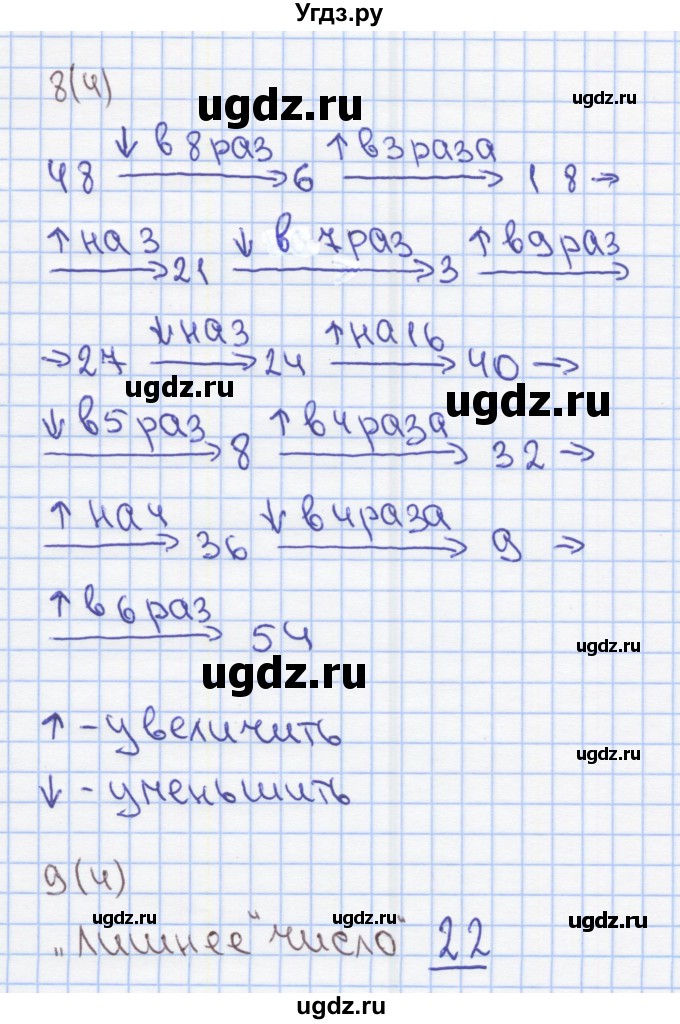 Угдз.ру
8(4)
ugdz.ru
ugdz.ru
48 ↓ в 8 раз → 6 ↑ в 3 раза → 18 →
↑ на 3 → 21 ↓ в 7 раз → 3 ↑ в 9 раз →
→ 27 ↓ на 3 → 24 ↑ на 16 → 40 →
ugdz.ru
ugdz.ru
↓ в 5 раз → 8 ↑ в 4 раза → 32 →
↑ на 4 → 36 ↓ в 4 раза → 9 →
↑ в 6 раз → 54
ugdz.ru
ugdz.ru
↑ - увеличить
ugdz.ru
↓ - уменьшить
9(4)
ugdz.ru
ugdz.ru
ugdz.ru
„Лишнее“ число“ 22
ugdz.ru